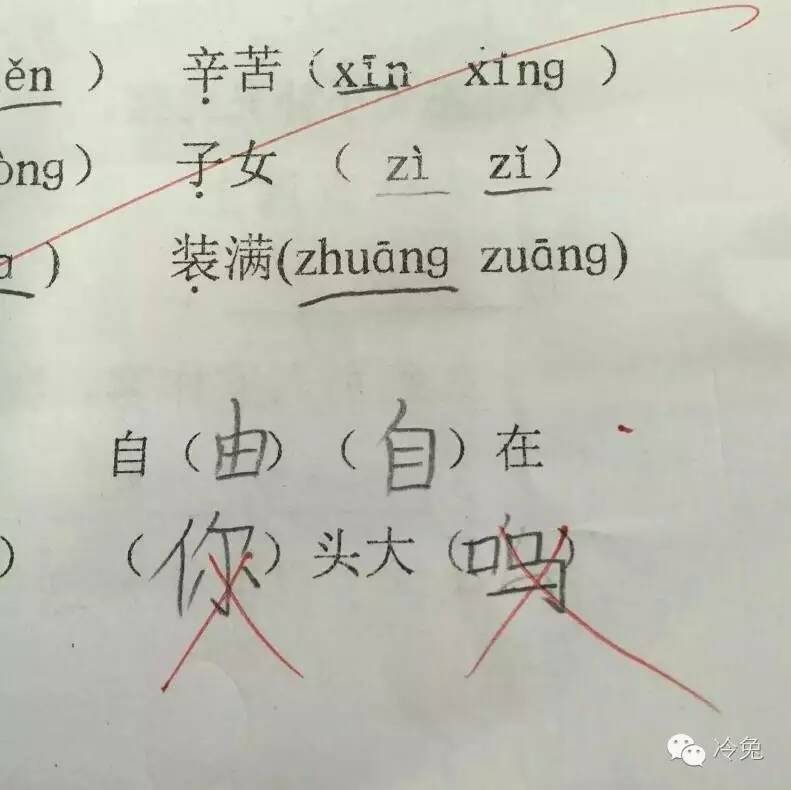 ěn ) 辛苦 (xīn xing )
òng) 子女 ( zì zǐ)
a ) 装满(zhuāng zuāng)
自(由) (自)在
) (你)头大(吗)
冷兔